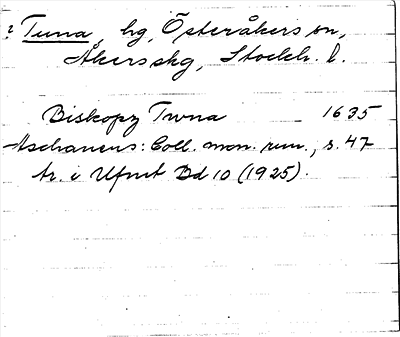 ? Tuna, hg, Österåkers sn,
Åkers skg, Stockh. l.
Biskopz Twna 1635
Aschaneus: Coll. mon. run., s. 47
tr. i Ufmt Bd 10 (1925).